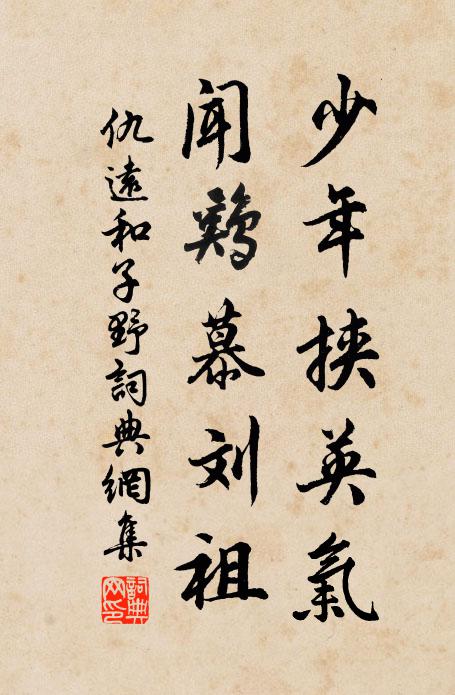 少年挾英氣
闻鷄慕刘祖
仇遠和子野詞典網集
詞典网印